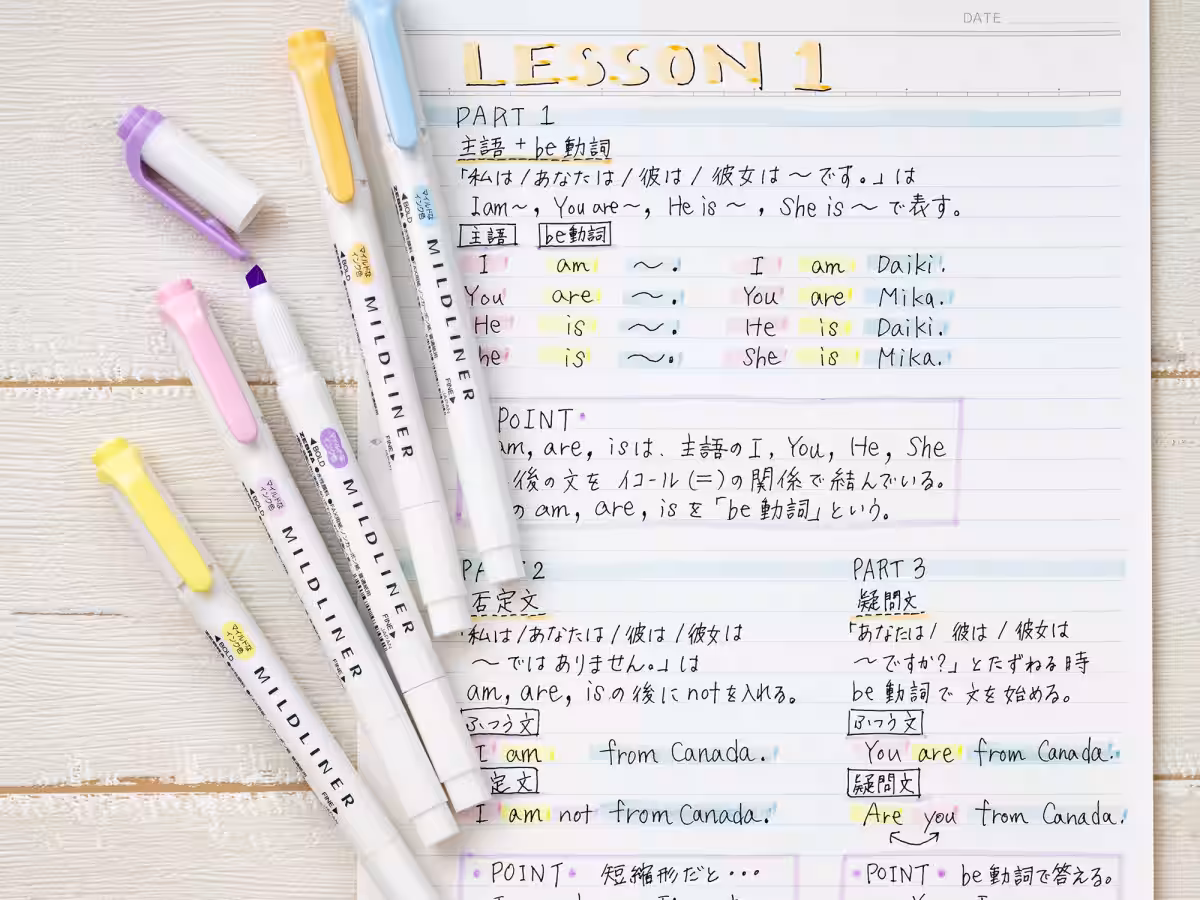 DATE
LESSON 1
PART 1
主語 + be 動詞
「私は / あなたは / 彼は / 彼女は 〜 です。」は
I am〜, You are〜, He is 〜, She is 〜 で表す。
主語 be動詞
I am 〜. I am Daiki.
You are 〜. You are Mika.
He is 〜. He is Daiki.
he is 〜. She is Mika.
POINT
am, are, isは、主語の I, You, He, She
後の文を イコール (=) の関係で結んでいる。
の am, are, isを「be 動詞」という。
PART 2
否定文
「私は/あなたは / 彼は / 彼女は
〜 ではありません。」は
am, are, isの後に notを入れる。
ふつう文
I am from Canada.
定文
I am not from Canada.
POINT 短縮形だと・・・
PART 3
疑問文
「あなたは / 彼は / 彼女は
〜ですか?」とたずねる時
be 動詞で 文を始める。
ふつう文
You are from Canada.
疑問文
Are you from Canada.
POINT be 動詞で答える。
マイルドな
インク色
BOLD
ZEBRA
MILDLINER
FINE
JAPAN
マイルドな
インク色
BOLD
MILDLINER
FINE
BOLD
ZEBRA
MILDLINER
FINE
JAPAN
マイルドな
インク色
BOLD
MILDLINER
FINE
マイルドな
インク色
BOLD
MILDLINER
FINE